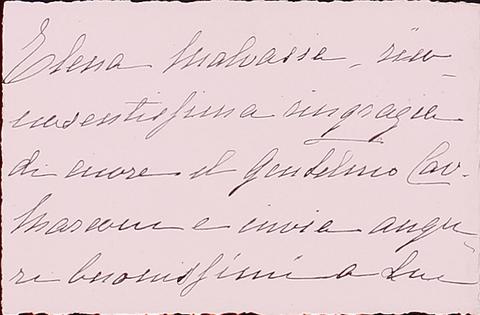 Elena Malvasia, rico-
noscentissima ringrazia
di cuore il Gentilmo Cav.
Marconi e invia augu-
ri buonissimi a Lui